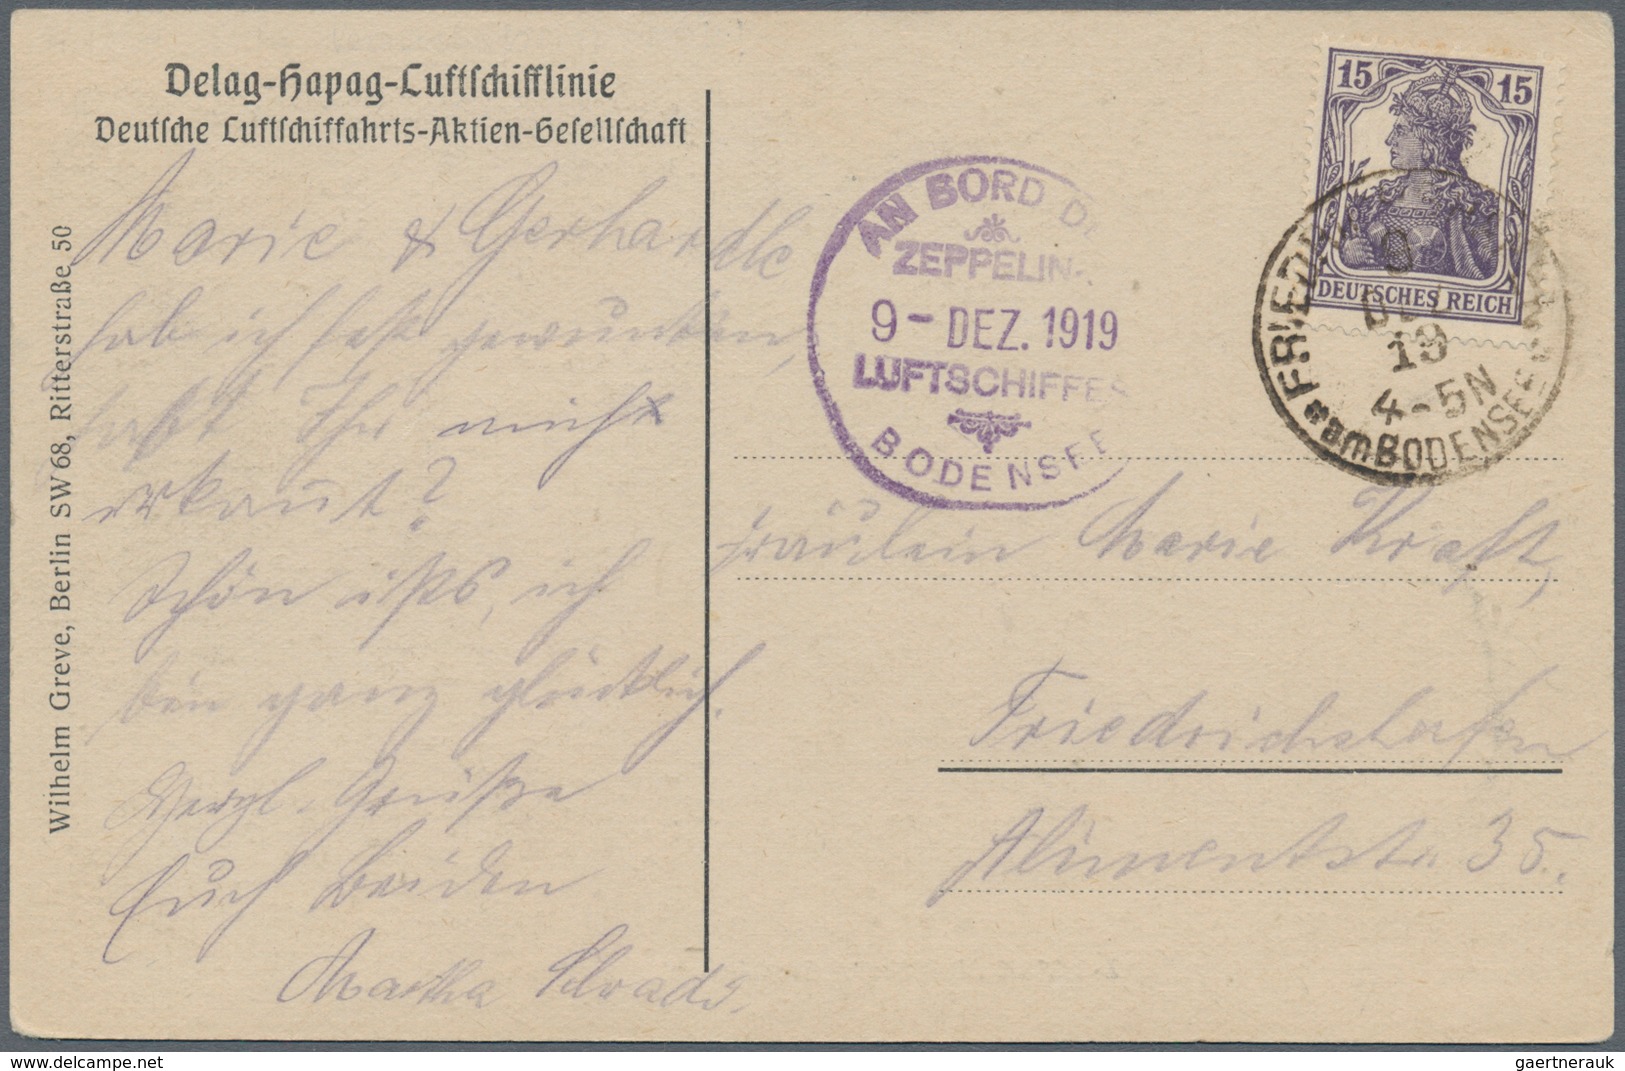 Delag-Hapag-Luftschifflinie
Deutsche Luftschiffahrts-Aktien-Gesellschaft
Wilhelm Greve, Berlin SW 68, Ritterstraße 50
Marie & Gerhardle
hab ich fest gewunken,
habt Ihr mich
erkannt?
Schön ists, ich
bin ganz glücklich.
Herzl. Grüße
Euch beiden
Martha
AN BORD DE
ZEPPELIN-
9 - DEZ. 1919
LUFTSCHIFFES
BODENSEE
15 15
DEUTSCHES REICH
FRIEDRICHSHAFEN
9
DEZ
19
4-5N
*am BODENSEE*
Fräulein Marie Kraft,
Friedrichshafen
35.
delcampe.net
gaertnerauk